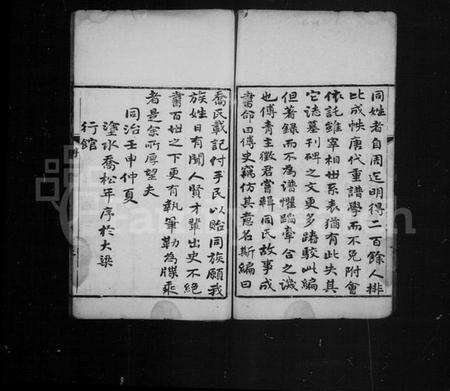 同姓者自周迄明得二百餘人排
比成帙唐代重譜學而不免附會
依託維宰相世系表猶有此失其
它誌墓刊碑之文更多踳駮此編
但著錄而不為譜懼蹈牽合之譏
也傅青主徵君嘗輯同氏故事成
書命曰傅史竊仿其意名斯編曰
喬氏載記付手民以貽同族願我
族姓日有聞人賢才輩出史不絕
書百世之下更有執筆勒為牒乘
者是余所厚望夫
同治壬申仲夏
喬松年序於大梁
行館